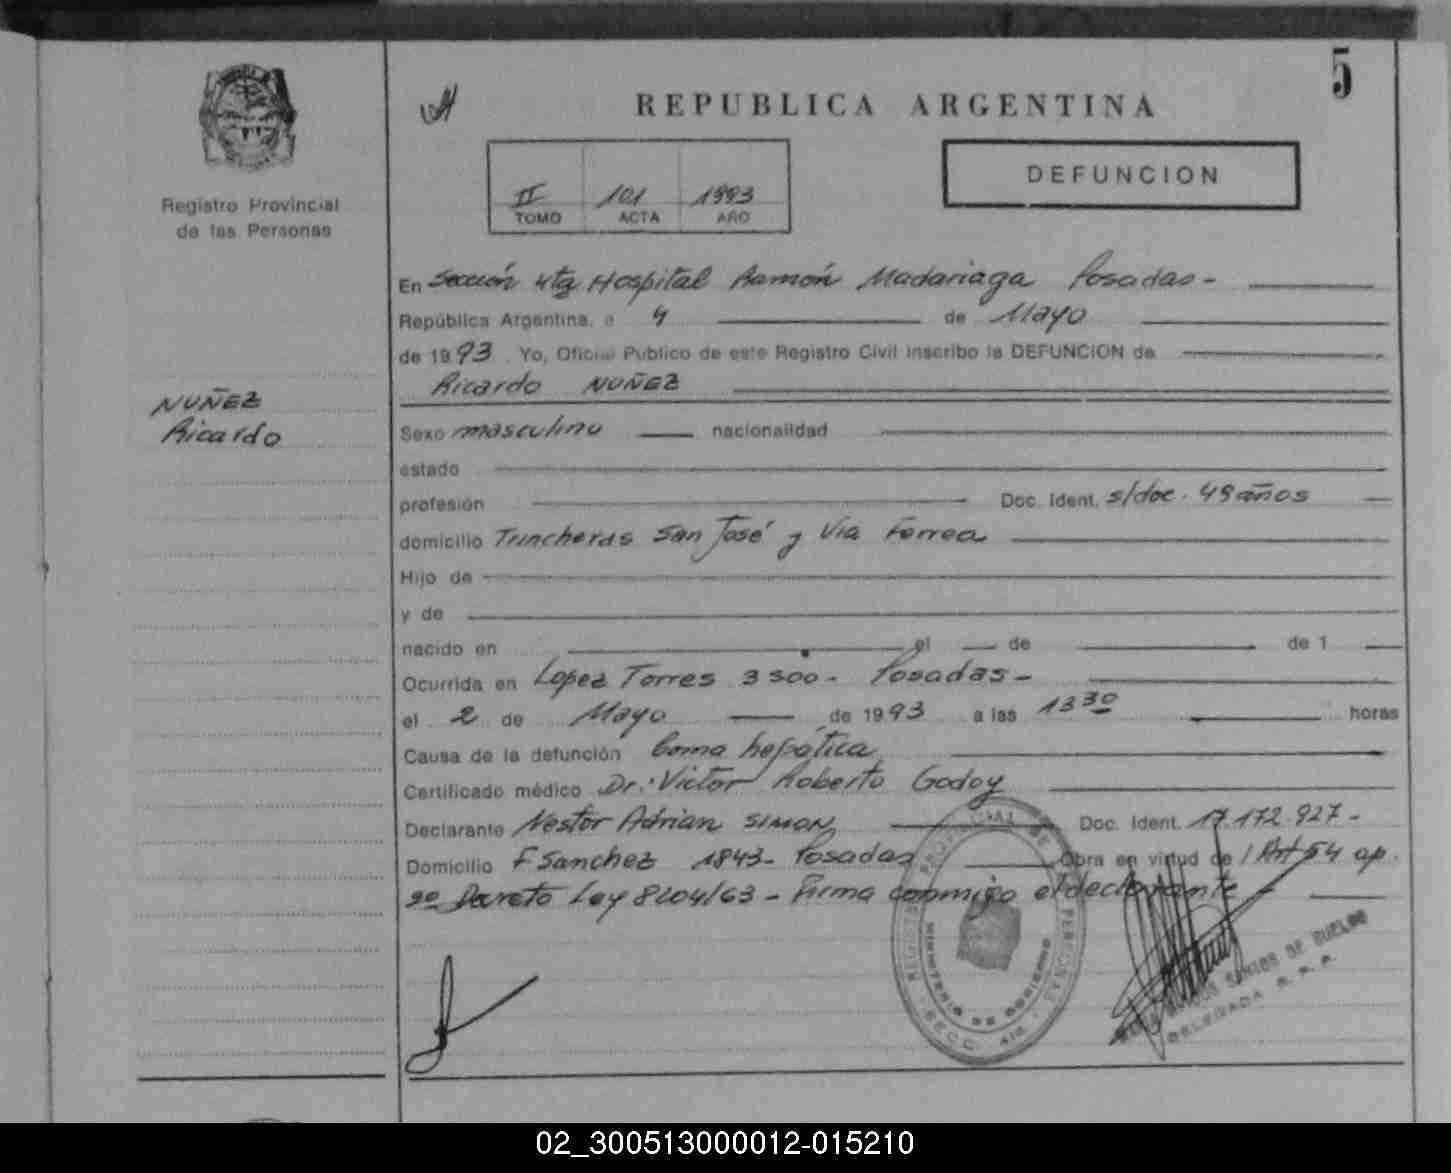 5
REPUBLICA ARGENTINA
DEFUNCION
II 101 1993
TOMO ACTA AÑO
Registro Provincial
de las Personas
NUÑEZ
Ricardo
En Sección 4ta Hospital Ramón Madariaga Posadas-
República Argentina, a 4 de Mayo
de 1993. Yo, Oficial Publico de este Registro Civil inscribo la DEFUNCION de
Ricardo NUÑEZ
Sexo masculino nacionalidad
estado
profesión Doc. Ident. s/doc. 49 años
domicilio Trincheras San José y Via Ferrea
Hijo de
y de
nacido en el de de 1
Ocurrida en Lopez Torres 3500- Posadas-
el 2 de Mayo de 1993 a las 13 30 horas
Causa de la defunción Coma hepática
Certificado médico Dr. Victor Roberto Godoy
Declarante Nestor Adrian SIMON Doc. Ident. 17.172.927-
Domicilio F Sanchez 1843- Posadas Obra en virtud de Art 54 ap.
2º Decreto Ley 8204/63- Firma conmigo el declarante-
REGISTRO PROVINCIAL DE PERSONAS
MINISTERIO DE GOBIERNO
SECC. 4ta
SANTOS DE DUELOS
DELEGADA R. P. P.
02_300513000012-015210